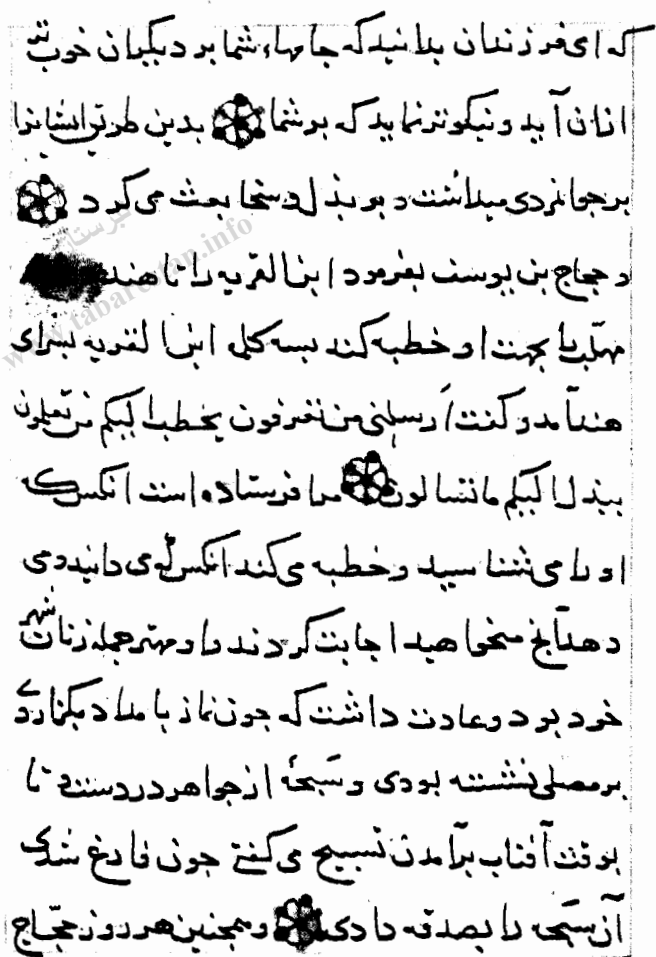 که ای فرزندان بدانید که جامهاء شما بر دیگران خوب تر
ازان آید و نیکوتر نماید که بر شما بدین طریق ایشانرا
بر جوانمردی میداشت و بر بذل و سخا بعث می کرد
و حجاج بن یوسف بفرمود ابن القریه را تا هند
مهلب را بجهت او خطبه کند بسه کلمه ابن القریه بسرای
هند آمد و گفت ارسلنی من تعرفون یخطب الیکم من تعلمون
یبذل الیکم ما تسالون مرا فرستاده است انکس که
او را می شناسید و خطبه می کند انکس که می دانید و می
دهد آنچ میخواهید اجابت کردند و او مهتر جمله زنان شهر
خود بود و عادت داشت که جون نماز بامداد بگزاردی
بر مصلی نشسته بودی و سبحهٔ از جواهر در دست تا
بوقت آفتاب برآمدن تسبیح می گفتی جون فارغ شدی
آن سبحه را بصدقه دادی و همجنین هر روز حجاج
www.tabarestan.info
تبرستان